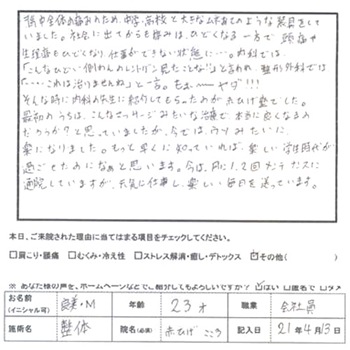 背中全体の痛みのため、中学・高校と大きなムチ打てのような装具をして
いました。社会に出てからも痛みは、ひどくなる一方で頭痛や
生理痛もひどくなり仕事ができない状態に…。内科では、
「こんなひどい側わんのレントゲン見たことない」と言われ、整形外科では
「……これは治りませんね」と一言。もぉーーヤダ!!!
そんな時に内科の先生に紹介してもらったのが赤ひげ堂でした。
最初のうちは、こんなマッサージみたいな治療で本当に良くなるの
だろうか?と思っていましたが、今では、ウソみたいに
楽になりました。もっと早くに知っていれば、楽しい学生時代が
過ごせたのになぁと思います。今は、月に1、2回メンテナンスに
通院していますが、元気に仕事し、楽しい毎日を送っています。
本日、ご来院された理由に当てはまる項目をチェックしてください。
□肩こり・頭痛 □むくみ・冷え性 □ストレス解消・癒し・デトックス ☑その他(
※ あなた様の声を、ホームページなどでご紹介してもよろしいですか? ☑はい □匿名で □ダメ
お名前 (イニシャル可) 良美・M 年齢 23才 職業 会社員
施術名 整体 院名(必須) 赤ひげ こころ 記入日 21年4月13日